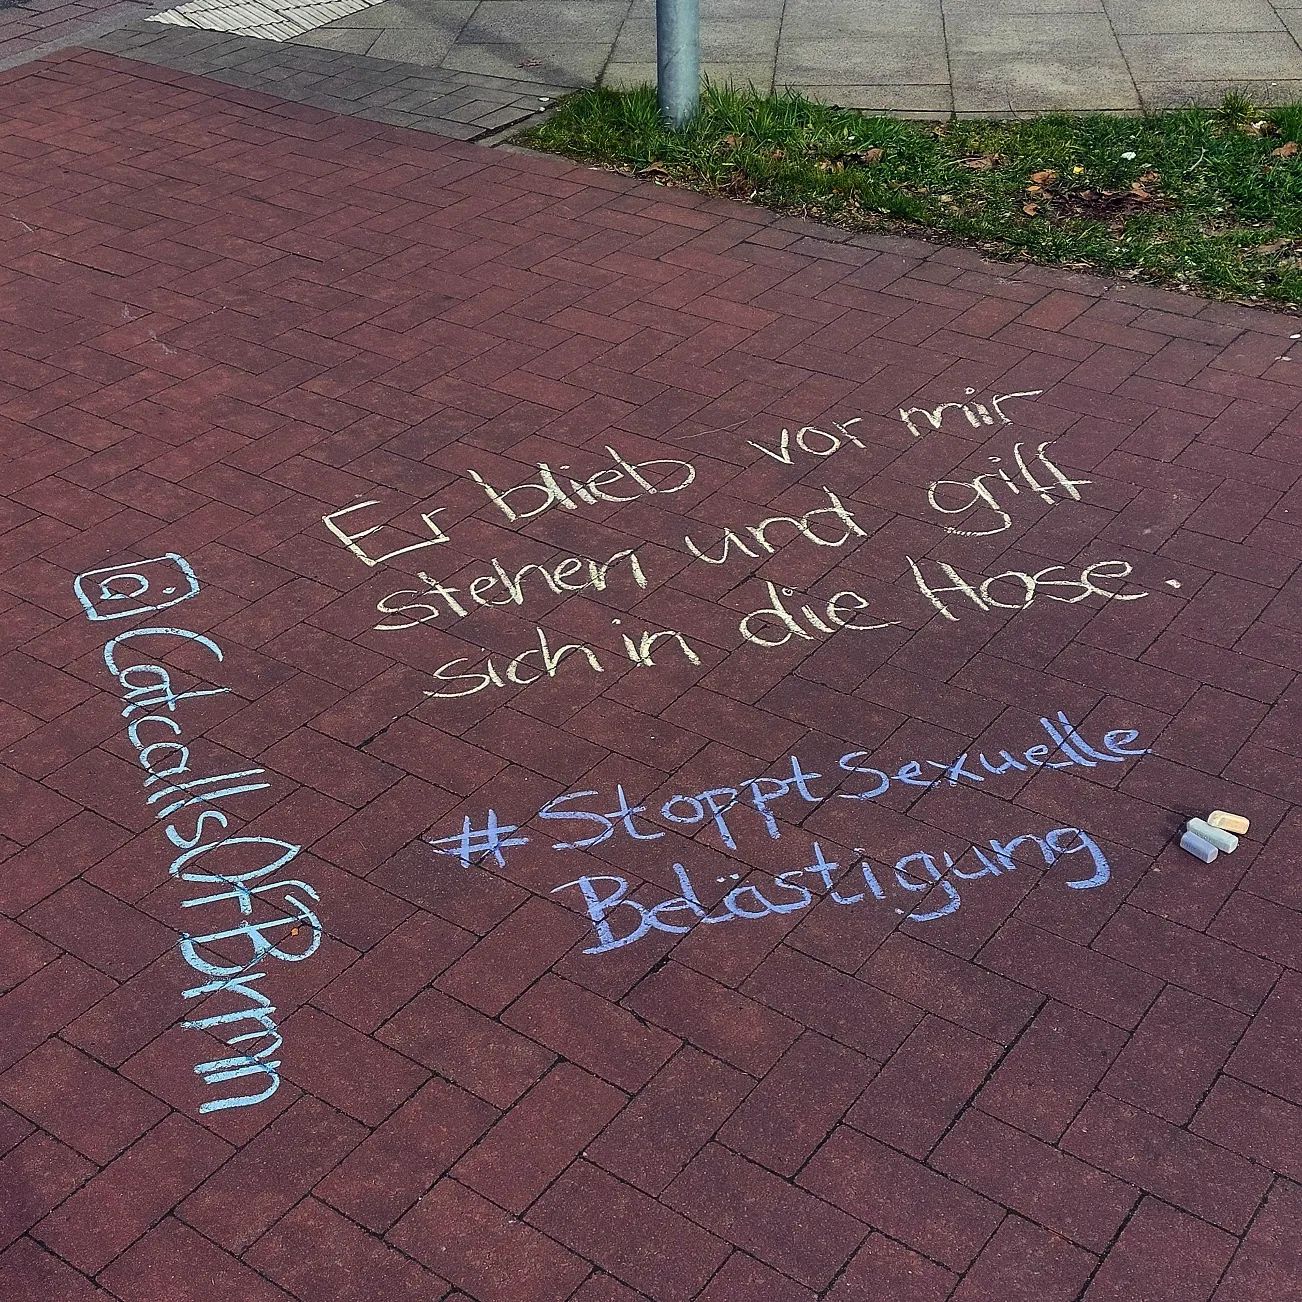 Er blieb vor mir
stehen und griff
sich in die Hose.
#Stoppt Sexuelle
Belästigung
CatcallsOfBrmn